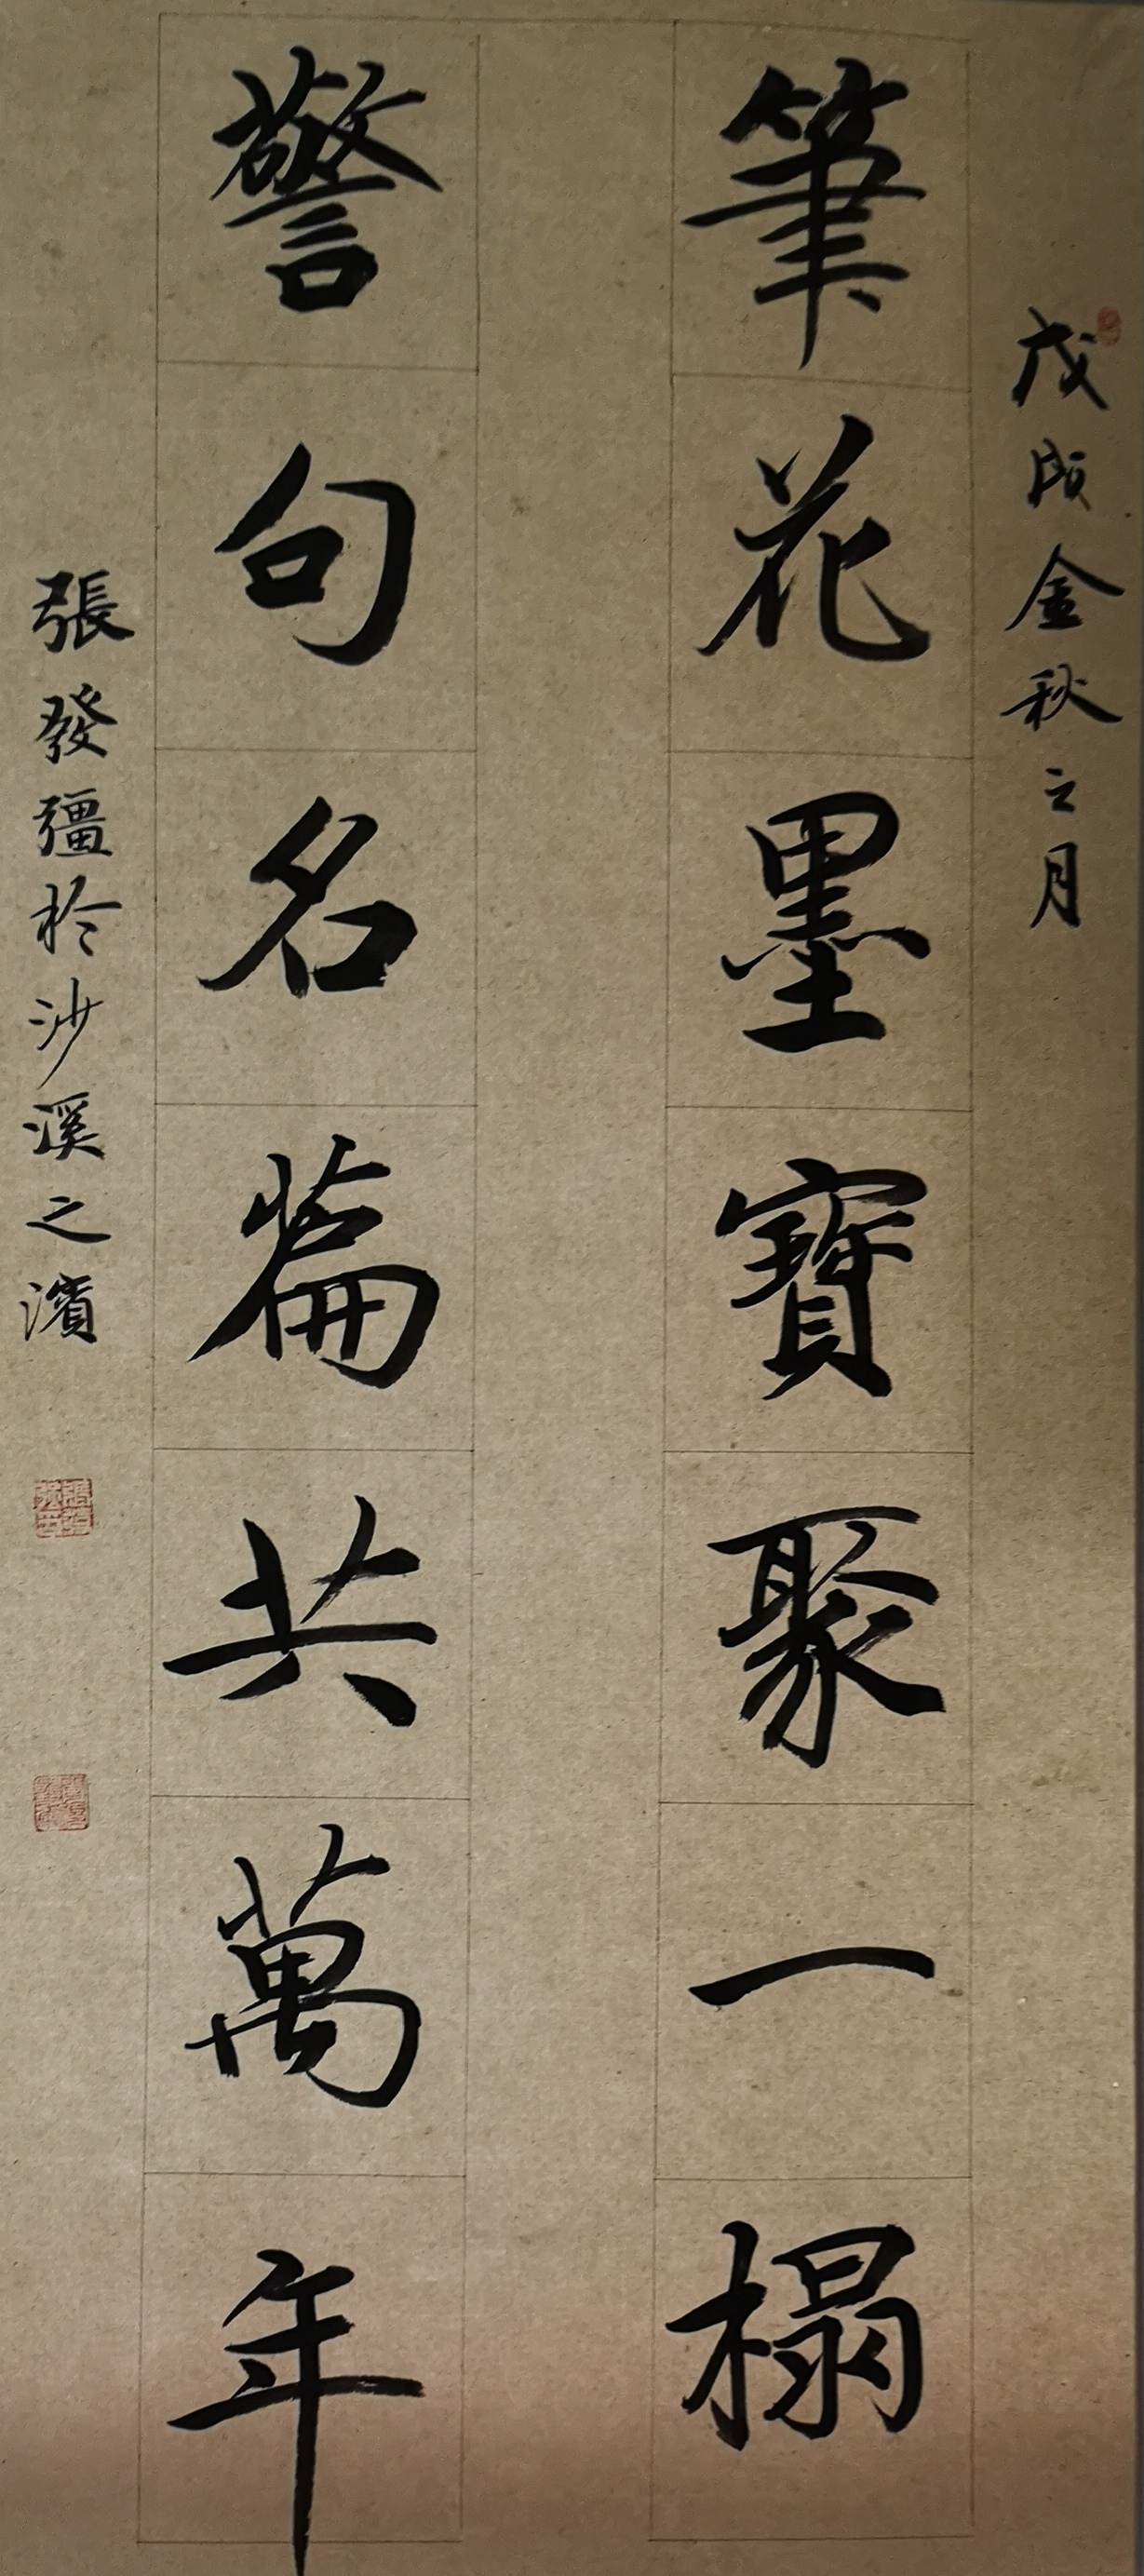 戊戌金秋之月
筆花墨寶聚一榻
警句名篇共萬年
張發彊於沙溪之濱